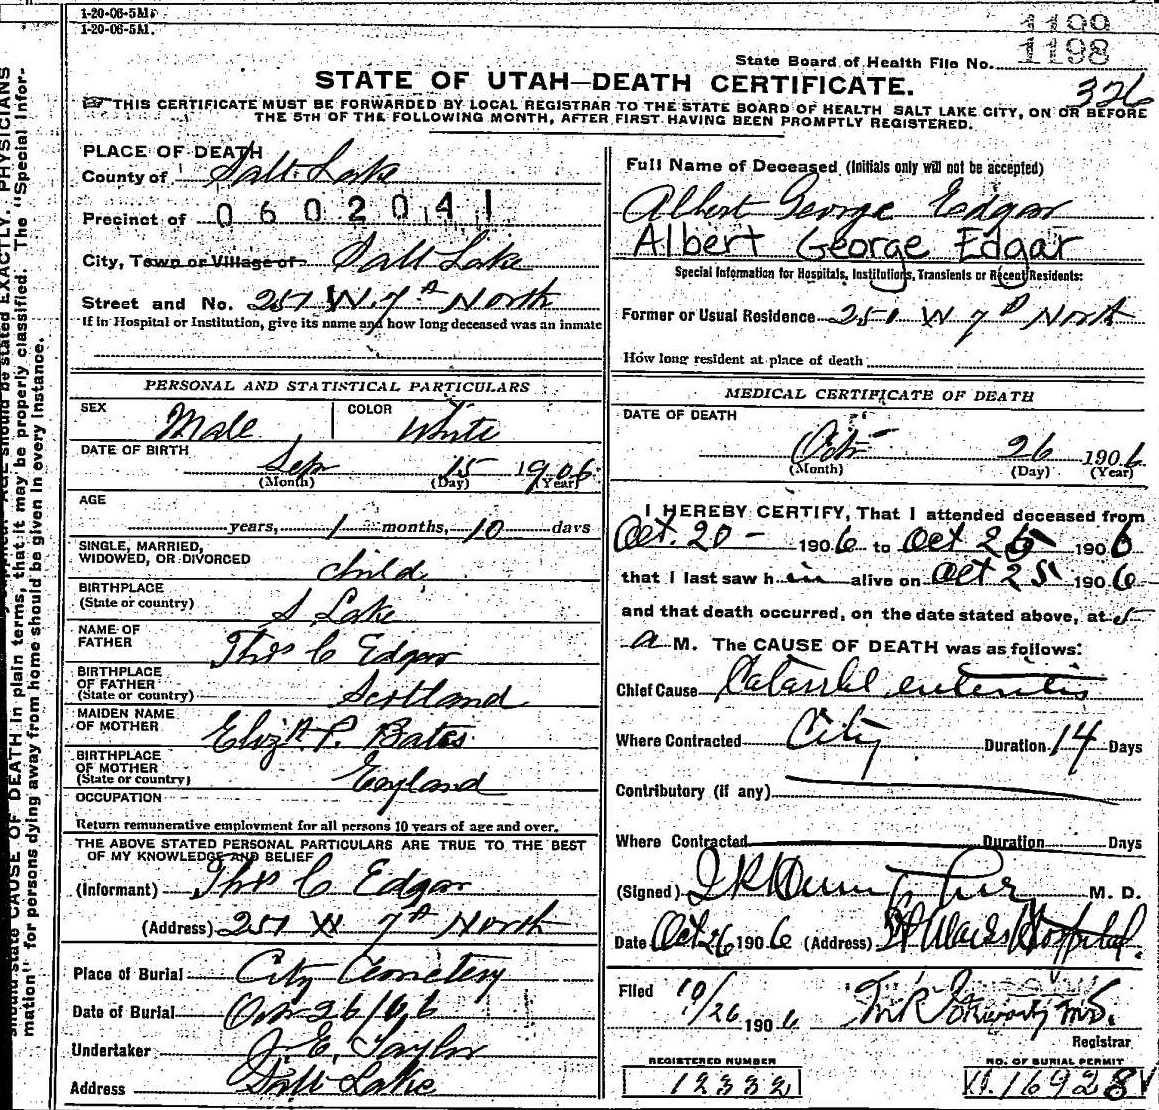 1-20-06-5M.
1-20-06-5M.
1199
1198
State Board of Health File No.
326
STATE OF UTAH—DEATH CERTIFICATE.
THIS CERTIFICATE MUST BE FORWARDED BY LOCAL REGISTRAR TO THE STATE BOARD OF HEALTH SALT LAKE CITY, ON OR BEFORE
THE 5TH OF THE FOLLOWING MONTH, AFTER FIRST HAVING BEEN PROMPTLY REGISTERED.
PLACE OF DEATH
County of Salt Lake
Precinct of 0602041
City, Town or Village of Salt Lake
Street and No. 251 W. 7th North
If in Hospital or Institution, give its name and how long deceased was an inmate
PERSONAL AND STATISTICAL PARTICULARS
SEX Male COLOR White
DATE OF BIRTH Sep 15 1906
(Month) (Day) (Year)
AGE
years, 1 months, 10 days
SINGLE, MARRIED,
WIDOWED, OR DIVORCED child
BIRTHPLACE
(State or country) S Lake
NAME OF
FATHER Thos C Edgar
BIRTHPLACE
OF FATHER
(State or country) Scotland
MAIDEN NAME
OF MOTHER Elizth P. Bates
BIRTHPLACE
OF MOTHER
(State or country) England
OCCUPATION
Return remunerative employment for all persons 10 years of age and over.
THE ABOVE STATED PERSONAL PARTICULARS ARE TRUE TO THE BEST
OF MY KNOWLEDGE AND BELIEF
(Informant) Thos C Edgar
(Address) 251 W 7th North
Place of Burial City Cemetery
Date of Burial Oct 26/06
Undertaker J. E. Taylor
Address Salt Lake
Full Name of Deceased (Initials only will not be accepted)
Albert George Edgar
Albert George Edgar
Special Information for Hospitals, Institutions, Transients or Recent Residents:
Former or Usual Residence 251 W 7th North
How long resident at place of death
MEDICAL CERTIFICATE OF DEATH
DATE OF DEATH
Oct 26 1906
(Month) (Day) (Year)
I HEREBY CERTIFY, That I attended deceased from
Oct. 20 - 1906 to Oct 25 1906
that I last saw him alive on Oct 25 1906
and that death occurred, on the date stated above, at 5
a M. The CAUSE OF DEATH was as follows:
Chief Cause Catarrhl enteritis
Where Contracted City Duration 14 Days
Contributory (if any)
Where Contracted Duration Days
(Signed) M. D.
Date Oct 26 1906 (Address) St Marks Hospital.
Filed 10/26 1906 M.D.
Registrar
REGISTERED NUMBER
12332
NO. OF BURIAL PERMIT
16928
should state CAUSE OF DEATH in plain terms, that it may be properly classified. The "Special Infor-
mation" for persons dying away from home should be given in every instance.
AGE should be stated EXACTLY. PHYSICIANS